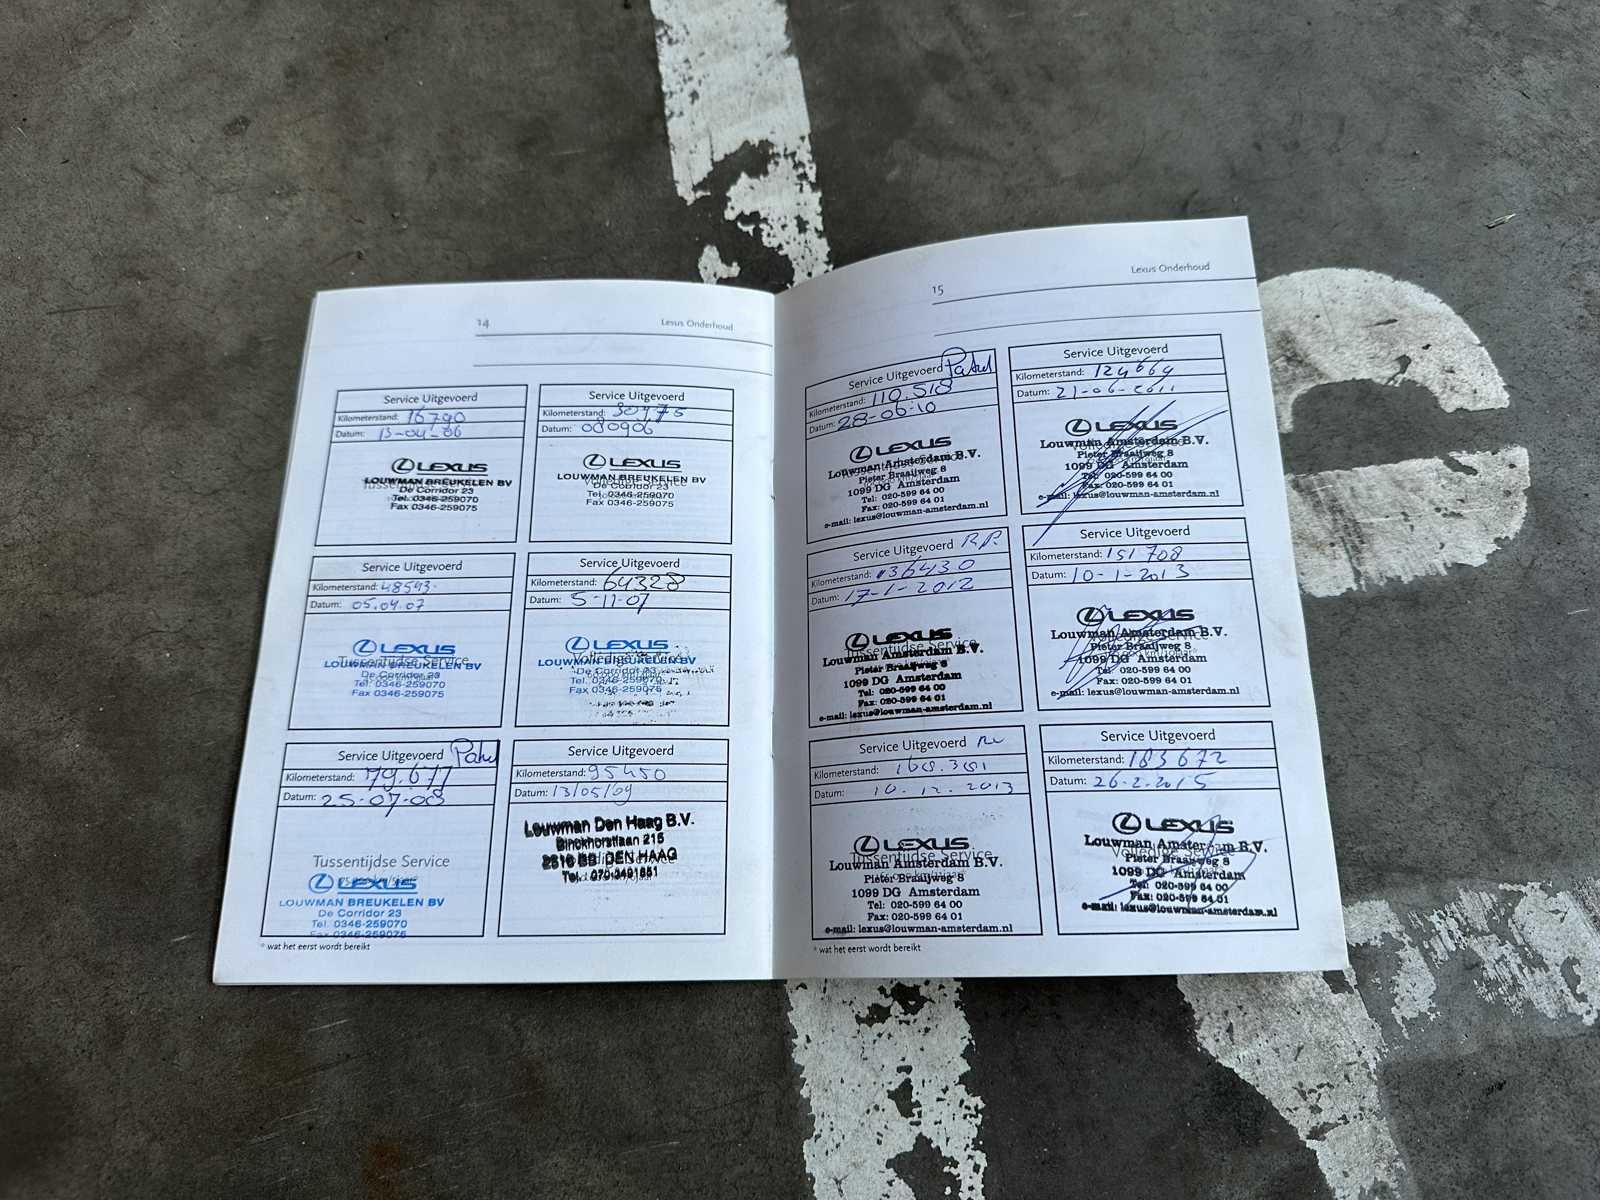 14
Lexus Onderhoud
Service Uitgevoerd
Kilometerstand: 16790
Datum: 13-04-06
LEXUS
LOUWMAN BREUKELEN BV
De Corridor 23
Tel. 0346-259070
Fax 0346-259075
Service Uitgevoerd
Kilometerstand: 30475
Datum: 080906
LEXUS
LOUWMAN BREUKELEN BV
De Corridor 23
Tel. 0346-259070
Fax 0346-259075
Service Uitgevoerd
Kilometerstand: 48543
Datum: 05.04.07
LEXUS
Tussentijdse Service
LOUWMAN BREUKELEN BV
De Corridor 23
Tel. 0346-259070
Fax 0346-259075
Service Uitgevoerd
Kilometerstand: 64328
Datum: 5-11-07
LEXUS
Volledige
LOUWMAN BREUKELEN BV
De Corridor 23
Tel. 0346-259070
Fax 0346-259075
Service Uitgevoerd
Kilometerstand: 79.677
Datum: 25-07-08
Tussentijdse Service
LEXUS
LOUWMAN BREUKELEN BV
De Corridor 23
Tel. 0346-259070
Fax 0346-259075
Service Uitgevoerd
Kilometerstand: 95450
Datum: 13/05/09
Louwman Den Haag B.V.
Binckhorstlaan 215
2516 BB DEN HAAG
Tel. 070-3491651
* wat het eerst wordt bereikt
15
Lexus Onderhoud
Service Uitgevoerd
Kilometerstand: 110.518
Datum: 28-06-10
LEXUS
Louwman Amsterdam B.V.
Pieter Braaijweg 8
1099 DG Amsterdam
Tel: 020-599 64 00
Fax: 020-599 64 01
e-mail: lexus@louwman-amsterdam.nl
Service Uitgevoerd
Kilometerstand: 124664
Datum: 21-06-2011
LEXUS
Louwman Amsterdam B.V.
Pieter Braaijweg 8
1099 DG Amsterdam
Tel: 020-599 64 00
Fax: 020-599 64 01
e-mail: lexus@louwman-amsterdam.nl
Service Uitgevoerd RR
Kilometerstand: 136430
Datum: 17-1-2012
LEXUS
Tussentijdse Service
Louwman Amsterdam B.V.
Pieter Braaijweg 8
1099 DG Amsterdam
Tel: 020-599 64 00
Fax: 020-599 64 01
e-mail: lexus@louwman-amsterdam.nl
Service Uitgevoerd
Kilometerstand: 151708
Datum: 10-1-2013
LEXUS
Louwman Amsterdam B.V.
Volledige Service
Pieter Braaijweg 8
1099 DG Amsterdam
Tel: 020-599 64 00
Fax: 020-599 64 01
e-mail: lexus@louwman-amsterdam.nl
Service Uitgevoerd
Kilometerstand:
Datum: 10.12.2013
LEXUS
Tussentijdse Service
Louwman Amsterdam B.V.
Pieter Braaijweg 8
1099 DG Amsterdam
Tel: 020-599 64 00
Fax: 020-599 64 01
e-mail: lexus@louwman-amsterdam.nl
Service Uitgevoerd
Kilometerstand: 183672
Datum: 26-2-2015
LEXUS
Louwman Amsterdam B.V.
Volledige Service
Pieter Braaijweg 8
1099 DG Amsterdam
Tel: 020-599 64 00
Fax: 020-599 64 01
e-mail: lexus@louwman-amsterdam.nl
* wat het eerst wordt bereikt